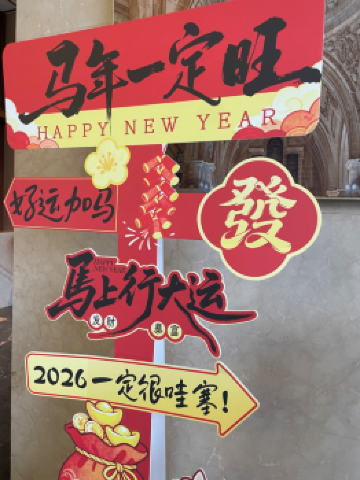 马年一定旺
HAPPY NEW YEAR
好运加马
發
HAPPY
NEW YEAR
馬上行大运
发财
暴富
2026一定很哇塞!